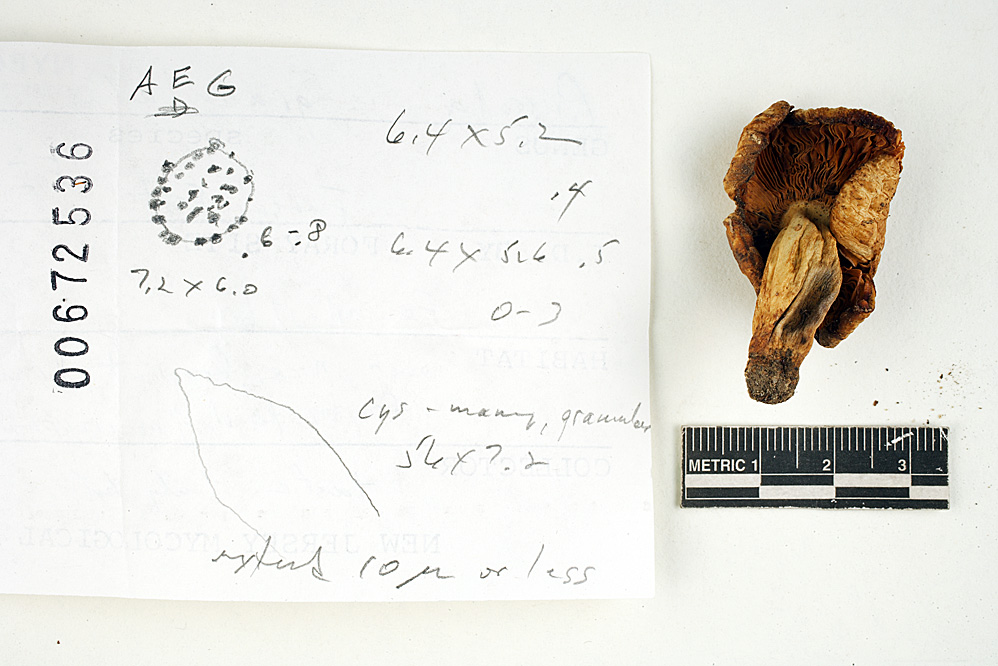 AEG
D
6.4 x 5.2
.4
.6 - .8
7.2 x 6.0
6.4 x 5.6 .5
0-3
cys - many, granular
56 x 7.2
extend 10 µ or less
00672536
METRIC 1 2 3
species
GENUS
HABITAT
COLLECTOR
NEW JERSEY MYCOLOGICAL